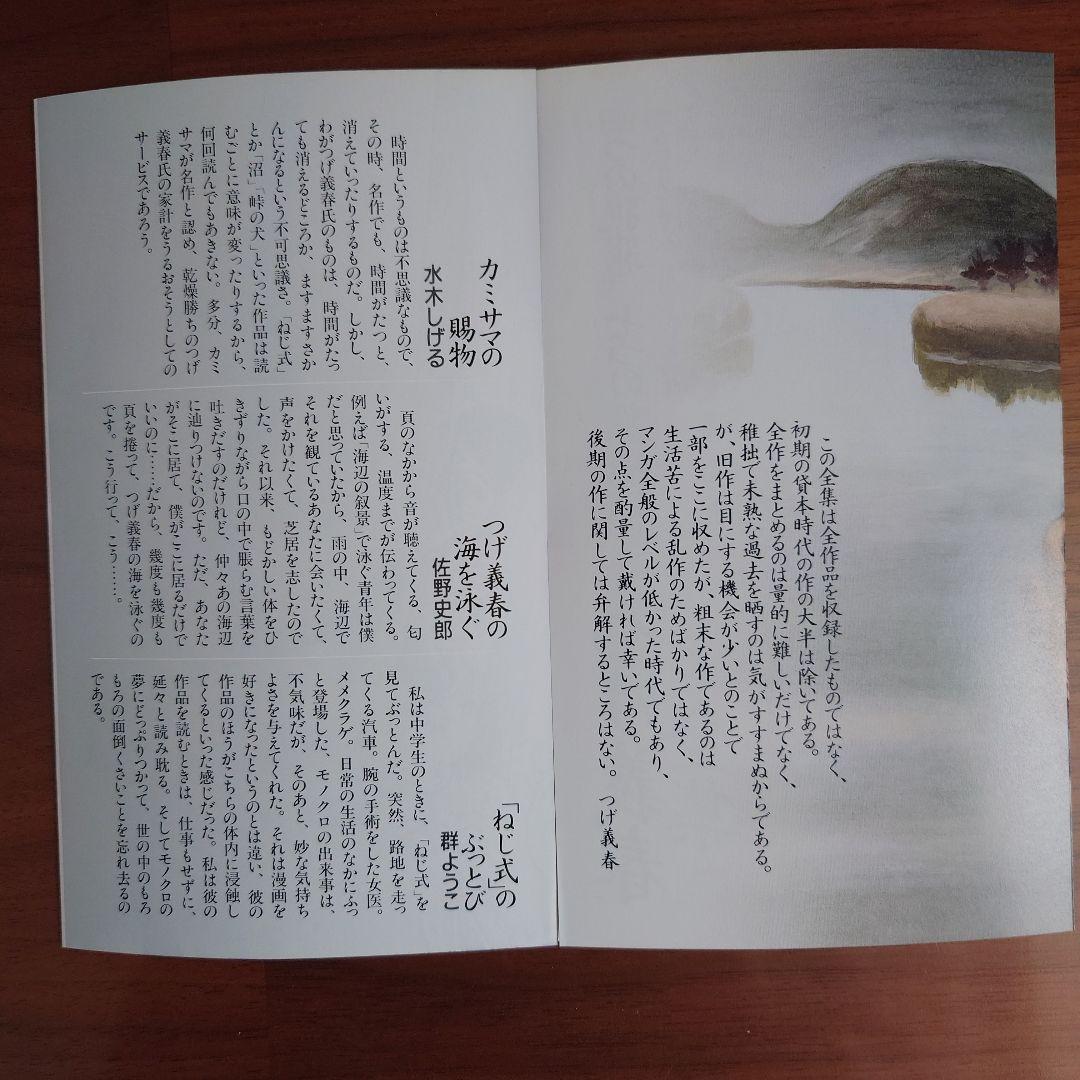 この全集は全作品を収録したものではなく、
初期の貸本時代の作の大半は除いてある。
全作をまとめるのは量的に難しいだけでなく、
稚拙で未熟な過去を晒すのは気がすすまぬからである。
が、旧作は目にする機会が少いとのことで
一部をここに収めたが、粗末な作であるのは
生活苦による乱作のためばかりではなく、
マンガ全般のレベルが低かった時代でもあり、
その点を酌量して戴ければ幸いである。
後期の作に関しては弁解するところはない。 つげ義春
カミサマの
賜物
水木しげる
時間というものは不思議なもので、
その時、名作でも、時間がたつと、
消えていったりするものだ。しかし、
わがつげ義春氏のものは、時間がたっ
ても消えるどころか、ますますさか
んになるという不可思議さ。「ねじ式」
とか「沼」「峠の犬」といった作品は読
むごとに意味が変ったりするから、
何回読んでもあきない。多分、カミ
サマが名作と認め、乾燥勝ちのつげ
義春氏の家計をうるおそうとしての
サービスであろう。
つげ義春の
海を泳ぐ
佐野史郎
頁のなかから音が聴えてくる、匂
いがする、温度までが伝わってくる。
例えば「海辺の叙景」で泳ぐ青年は僕
だと思っていたから、雨の中、海辺で
それを観ているあなたに会いたくて、
声をかけたくて、芝居を志したので
した。それ以来、もどかしい体をひ
きずりながら口の中で脹らむ言葉を
吐きだすのだけれど、仲々あの海辺
に辿りつけないのです。ただ、あなた
がそこに居て、僕がここに居るだけで
いいのに……だから、幾度も幾度も
頁を捲って、つげ義春の海を泳ぐの
です。こう行って、こう……。
「ねじ式」の
ぶっとび
群ようこ
私は中学生のときに、「ねじ式」を
見てぶっとんだ。突然、路地を走っ
てくる汽車。腕の手術をした女医。
メメクラゲ。日常の生活のなかにふっ
と登場した、モノクロの出来事は、
不気味だが、そのあと、妙な気持ち
よさを与えてくれた。それは漫画を
好きになったというのとは違い、彼の
作品のほうがこちらの体内に浸蝕し
てくるといった感じだった。私は彼の
作品を読むときは、仕事もせずに、
延々と読み耽る。そしてモノクロの
夢にどっぷりつかって、世の中のもろ
もろの面倒くさいことを忘れ去るの
である。